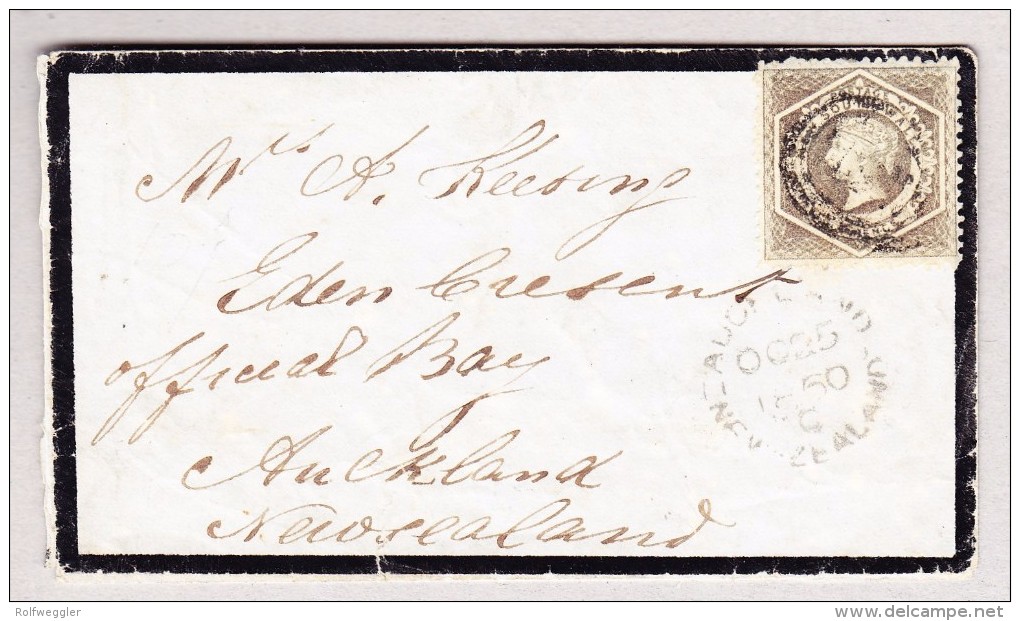 SOUTH WALES
Mrs. A. Keesing
Eden Cresent
official Bay
Auckland
Newsealand
AUCKLAND
OC 25
1860
NEW ZEALAND
Rolfweggler
www.delcampe.net